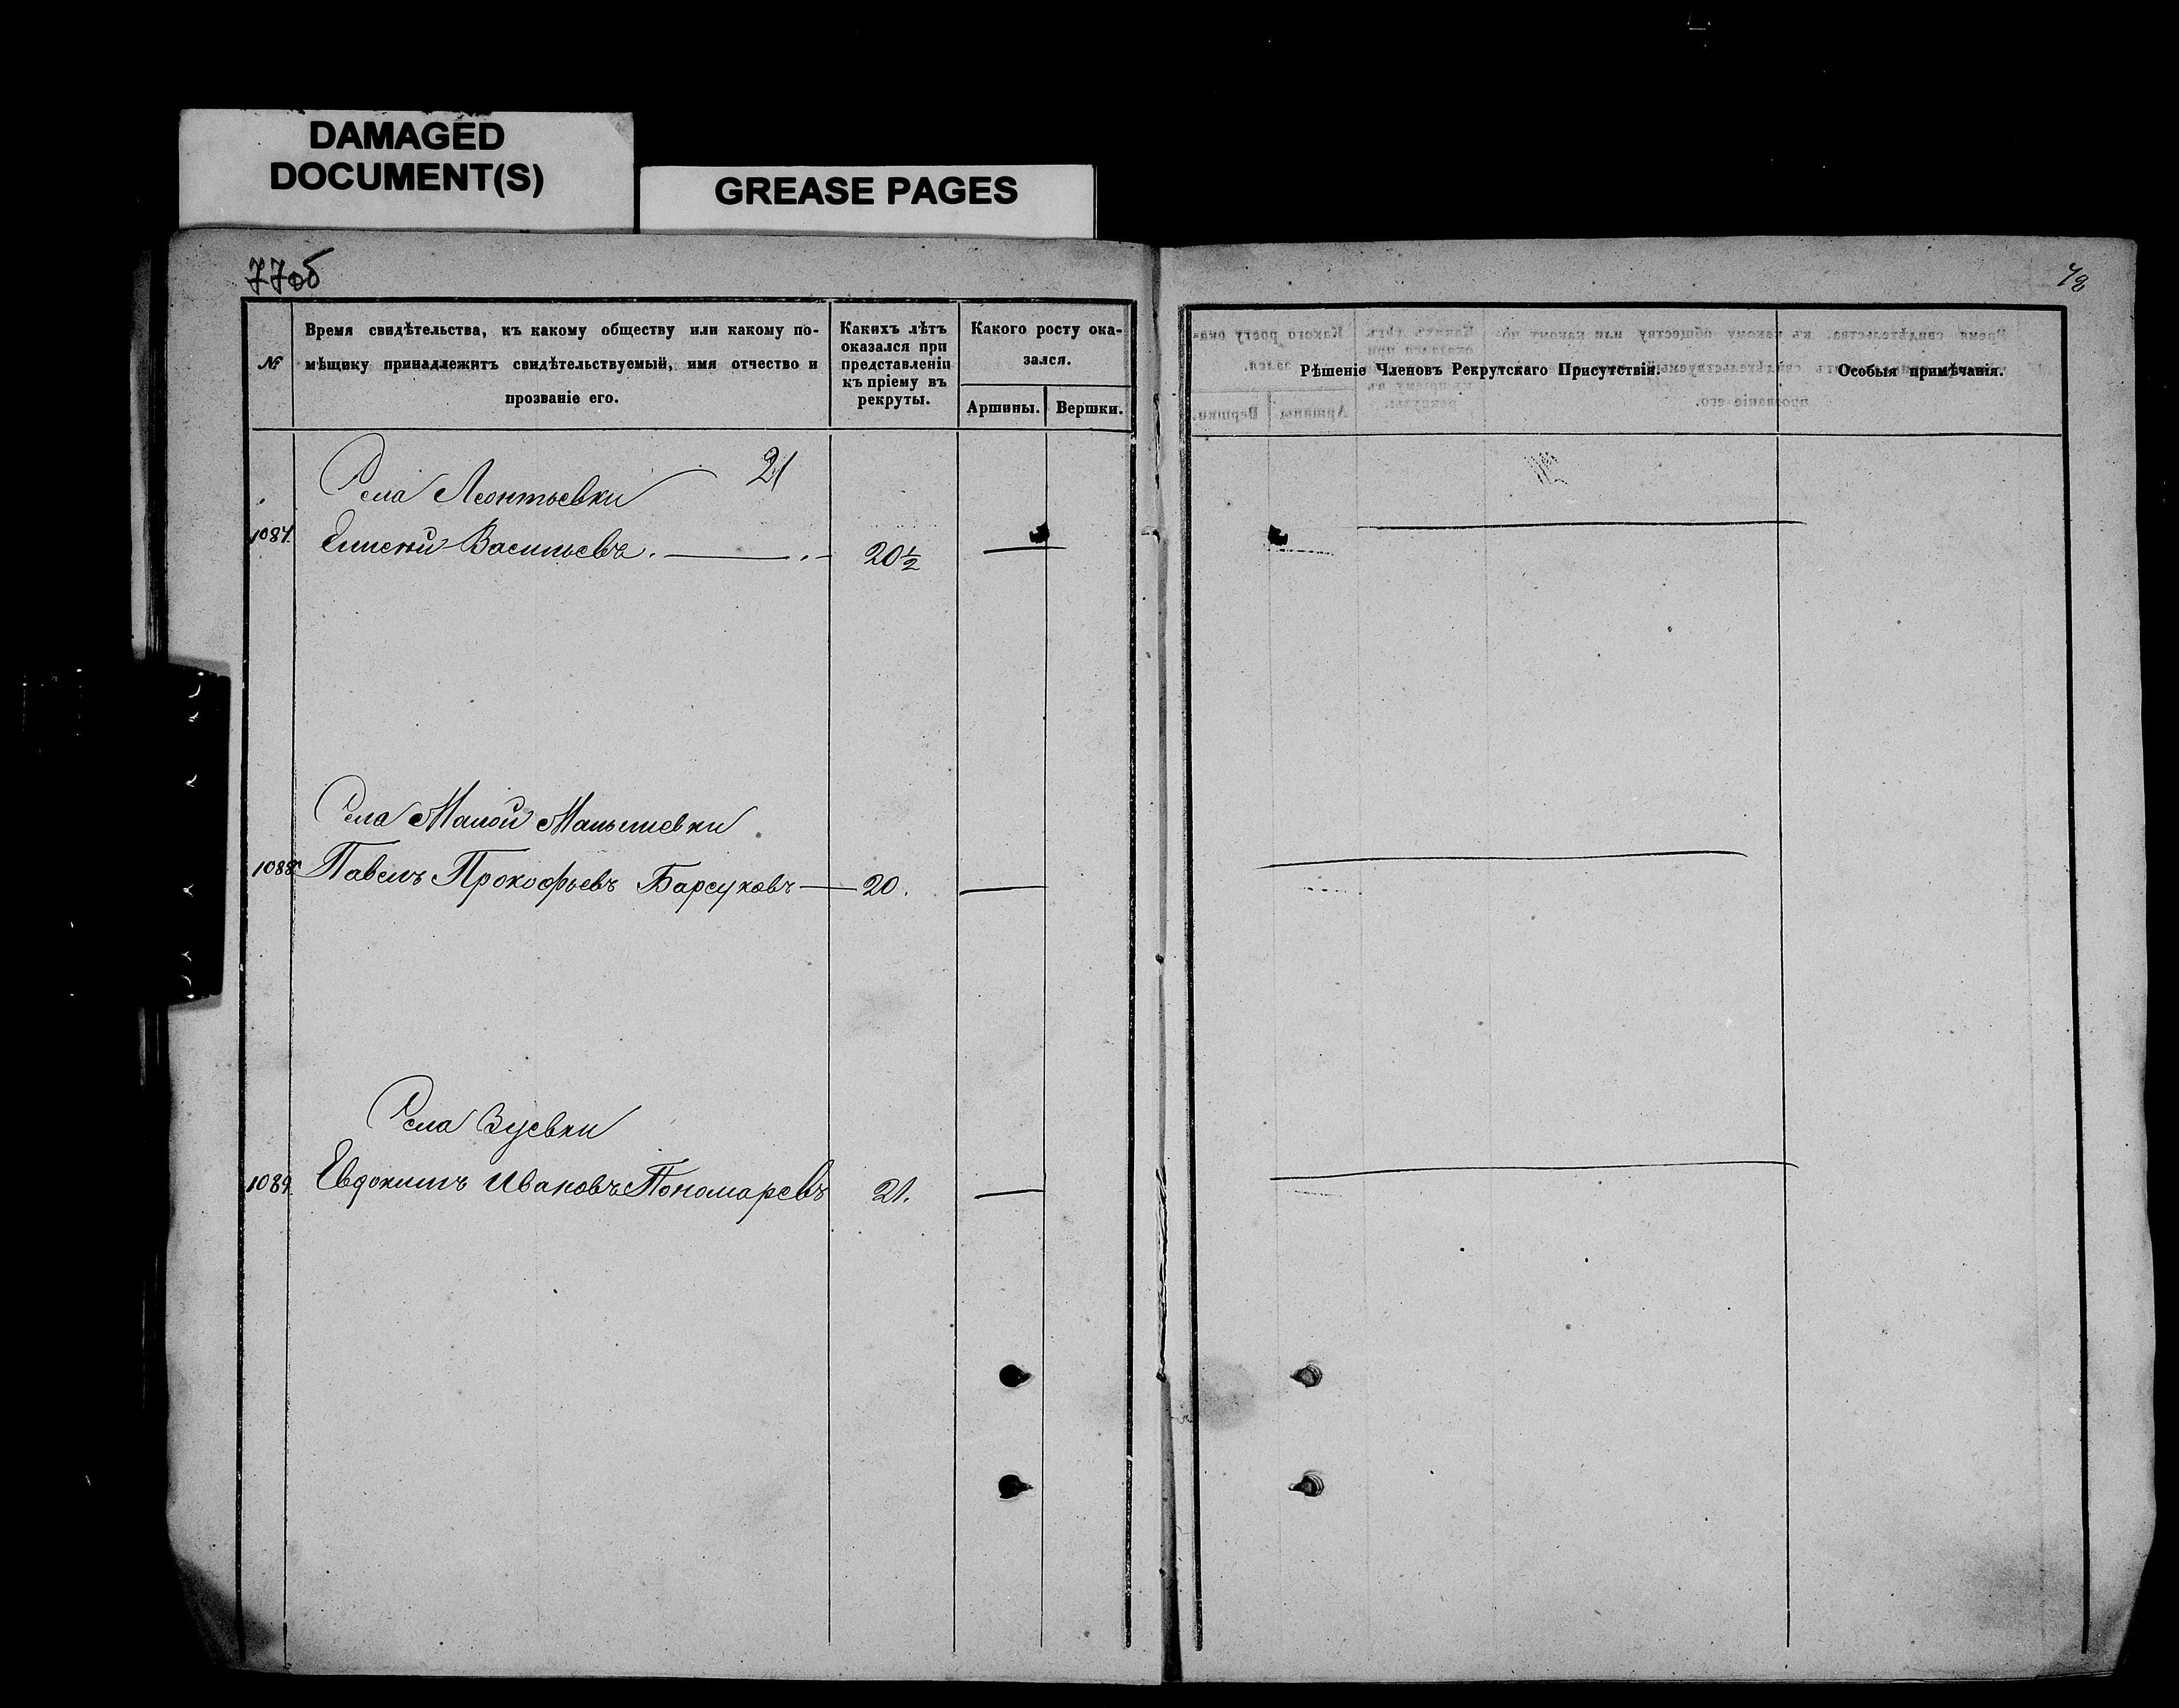 DAMAGED
DOCUMENT(S)
GREASE PAGES
77об
№
Время свидѣтельства, къ какому обществу или какому по-
мѣщику принадлежитъ свидѣтельствуемый, имя отчество и
прозваніе его.
Какихъ лѣтъ
оказался при
представленіи
къ пріему въ
рекруты.
Какого росту ока-
зался.
Аршины. Вершки.
21
Села Леонтьевки
1087. Елисей Васильевъ. 20½
Села Малой Малышевки
1088. Павелъ Прокофьевъ Барсуковъ 20.
Села Зуевки
1089. Евдокимъ Ивановъ Пономаревъ 21.
78
Рѣшеніе Членовъ Рекрутскаго Присутствія.
Особыя примѣчанія.